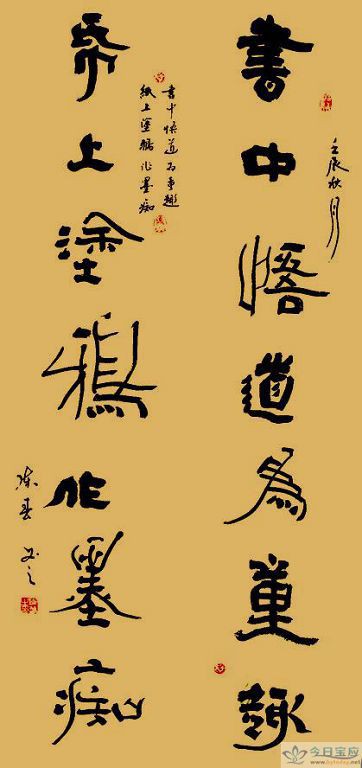 壬辰秋月
書中悟道為童趣
書中悟道為童趣
紙上塗鴉作墨痴
帋上塗鴉作墨痴
今日宝应